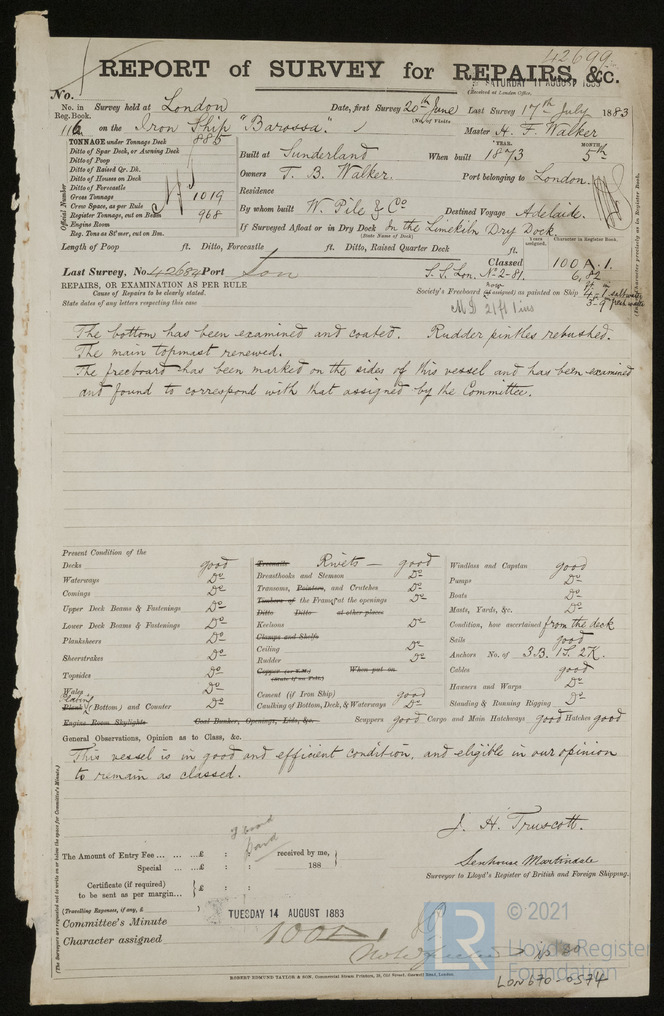 42699
REPORT of SURVEY for REPAIRS, &c.
SATURDAY 11 AUGUST 1883
(Received at London Office,
No.
No. in Reg. Book. Survey held at London Date, first Survey 20th June Last Survey 17th July 1883
(No. of Visits
116 on the Iron Ship "Barossa." Master H. F. Walker
TONNAGE under Tonnage Deck 885
Ditto of Spar Deck, or Awning Deck
Ditto of Poop
Ditto of Raised Qr. Dk.
Ditto of Houses on Deck
Ditto of Forecastle
Gross Tonnage 1019
Crew Space, as per Rule
Register Tonnage, cut on Beam 968
Engine Room
Reg. Tons as St'mer, cut on Bm.
Official Number
YEAR. MONTH.
Built at Sunderland When built 1873 5th
Owners T. B. Walker. Port belonging to London.
Residence
By whom built W. Pile & Co Destined Voyage Adelaide.
If Surveyed Afloat or in Dry Dock In the Limekiln Dry Dock.
(State Name of Dock)
Length of Poop ft. Ditto, Forecastle ft. Ditto, Raised Quarter Deck ft.
Years assigned. Character in Register Book.
Last Survey, No 42684 Port Lon Classed 100 A. 1.
S. S. Lon. No 2-81. 6, 82
REPAIRS, OR EXAMINATION AS PER RULE
Cause of Repairs to be clearly stated.
State dates of any letters respecting this case
Society's Freeboard (if assigned) as painted on Ship
3-9 fresh water
The bottom has been examined and coated. Rudder pintles rebushed.
The main topmast renewed.
The freeboard has been marked on the sides of this vessel and has been examined
and found to correspond with that assigned by the Committee.
Present Condition of the
Decks good
Waterways Do
Comings Do
Upper Deck Beams & Fastenings Do
Lower Deck Beams & Fastenings Do
Planksheers Do
Sheerstrakes Do
Topsides Do
Wales Do
Plating
Plank (Bottom) and Counter Do
Engine Room Skylights Coal Bunker, Openings, Lids, &c.
Treenails Rivets — good
Breasthooks and Stemson Do
Transoms, Pointers, and Crutches Do
Timbers of the Frame at the openings Do
Ditto Ditto at other places
Keelsons Do
Clamps and Shelfs
Ceiling Do
Rudder Do
Copper (or Y.M.) When put on
(State if on Felt)
Cement (if Iron Ship) good
Caulking of Bottom, Deck, & Waterways Do
Windlass and Capstan good
Pumps Do
Boats Do
Masts, Yards, &c. Do
Condition, how ascertained from the deck
Sails good
Anchors No. of 3.B. 1S. 2K.
Cables good
Hawsers and Warps Do
Standing & Running Rigging Do
Scuppers good Cargo and Main Hatchways good Hatches good
General Observations, Opinion as to Class, &c.
This vessel is in good and efficient condition, and eligible in our opinion
to remain as classed.
J. H. Truscott.
Senhouse Martindale
Surveyor to Lloyd's Register of British and Foreign Shipping.
The Amount of Entry Fee ... ... ... £ : : received by me,
Special ... ... £ : : 188
Certificate (if required) to be sent as per margin... £ : :
(Travelling Expenses, if any, £ )
Committee's Minute TUESDAY 14 AUGUST 1883
Character assigned 100A1
ROBERT EDMUND TAYLOR & SON, Commercial Steam Printers, 19, Old Street, Goswell Road, London.
LR © 2021
Lloyd's Register
Foundation
LON670-0374